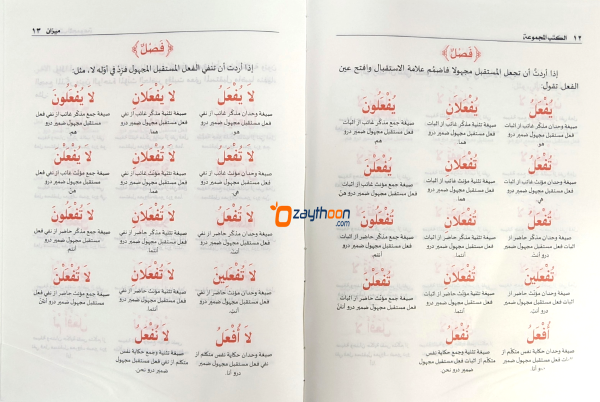 ١٢ الكتب المجموعة
﴿فَصْلٌ﴾
إذا أردتَ أن تجعل المستقبل مجهولا فاضمُم علامة الاستقبال وافتح عين
الفعل تقول:
يُفْعَلُ يُفْعَلَانِ يُفْعَلُونَ
صيغة وحدان مذكر غائب از اثبات صيغة تثنية مذكر غائب از اثبات صيغة جمع مذكر غائب از اثبات
فعل مستقبل مجهول ضمير درو فعل مستقبل مجهول ضمير درو فعل مستقبل مجهول ضمير درو
هو. هما. هم.
تُفْعَلُ تُفْعَلَانِ يُفْعَلْنَ
صيغة وحدان مؤنث غائب از اثبات صيغة تثنية مؤنث غائب از اثبات صيغة جمع مؤنث غائب از اثبات
فعل مستقبل مجهول ضمير درو فعل مستقبل مجهول ضمير درو فعل مستقبل مجهول ضمير درو هنّ
هي. هما.
تُفْعَلُ تُفْعَلَانِ تُفْعَلُونَ
صيغة وحدان مذكر حاضر از اثبات صيغة تثنية مذكر حاضر از اثبات صيغة جمع مذكر حاضر از اثبات
فعل مستقبل مجهول ضمير فعل مستقبل مجهول ضمير درو فعل مستقبل مجهول ضمير درو
درو أنتَ أنتما. أنتم.
تُفْعَلِينَ تُفْعَلَانِ تُفْعَلْنَ
صيغة وحدان مؤنث حاضر از صيغة تثنية مؤنث حاضر از صيغة جمع مؤنث حاضر از
اثبات فعل مستقبل مجهول ضمير اثبات فعل مستقبل مجهول ضمير اثبات فعل مستقبل مجهول ضمير
درو أنتِ درو أنتما درو أنتنّ
أُفْعَلُ نُفْعَلُ
صيغة وحدان حكاية نفس صيغة تثنية وجمع حكاية نفس
متكلّم از اثبات فعل مستقبل متكلّم از اثبات فعل مستقبل مجهول
مجهول ضمير درو أنا ضمير درو نحن.
ميزان ١٣
﴿فَصْلٌ﴾
إذا أردتَ أن تنفي الفعل المستقبل المجهول فزِدْ في أوّله لا، مثل:
لَا يُفْعَلُ لَا يُفْعَلَانِ لَا يُفْعَلُونَ
صيغة وحدان مذكر غائب از نفي صيغة تثنية مذكر غائب از نفي صيغة جمع مذكر غائب از نفي
فعل مستقبل مجهول ضمير درو فعل مستقبل مجهول ضمير درو فعل مستقبل مجهول ضمير درو
هو. هما. هم.
لَا تُفْعَلُ لَا تُفْعَلَانِ لَا يُفْعَلْنَ
صيغة وحدان مؤنث غائب از نفي صيغة تثنية مؤنث غائب از نفي صيغة جمع مؤنث غائب از نفي
فعل مستقبل مجهول ضمير درو فعل مستقبل مجهول ضمير درو فعل مستقبل مجهول ضمير درو هنّ
هي. هما.
لَا تُفْعَلُ لَا تُفْعَلَانِ لَا تُفْعَلُونَ
صيغة وحدان مذكر حاضر از نفي صيغة تثنية مذكر حاضر از نفي صيغة جمع مذكر حاضر از نفي
فعل مستقبل مجهول ضمير درو فعل مستقبل مجهول ضمير درو فعل مستقبل مجهول ضمير درو
أنتَ. أنتما. أنتم.
لَا تُفْعَلِينَ لَا تُفْعَلَانِ لَا تُفْعَلْنَ
صيغة وحدان مؤنث حاضر از نفي صيغة تثنية مؤنث حاضر از نفي صيغة جمع مؤنث حاضر از نفي
فعل مستقبل مجهول ضمير درو فعل مستقبل مجهول ضمير درو فعل مستقبل مجهول ضمير درو أنتنّ
أنتِ. أنتما.
لَا أُفْعَلُ لَا نُفْعَلُ
صيغة وحدان حكاية نفس متكلّم از صيغة تثنية وجمع حكاية نفس
نفي فعل مستقبل مجهول ضمير متكلّم از نفي فعل مستقبل مجهول
درو أنا ضمير درو نحن.
zaythoon
.com